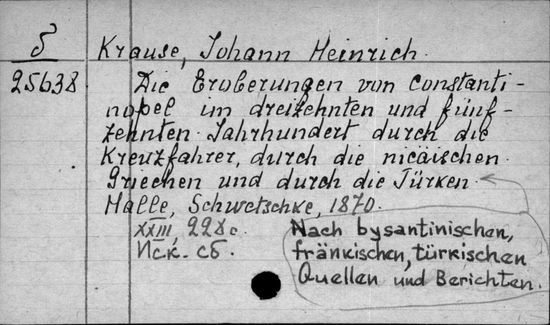 δ
Krause, Johann Heinrich.
25638
Die Eroberungen von Constanti-
nopel im dreizehnten und fünf-
zehnten Jahrhundert durch die
Kreuzfahrer, durch die nicäischen
Griechen und durch die Türken.
Halle, Schwetschke, 1870.
XXIII, 228 с.
Иск. сб.
Nach bysantinischen,
fränkischen, türkischen
Quellen und Berichten.